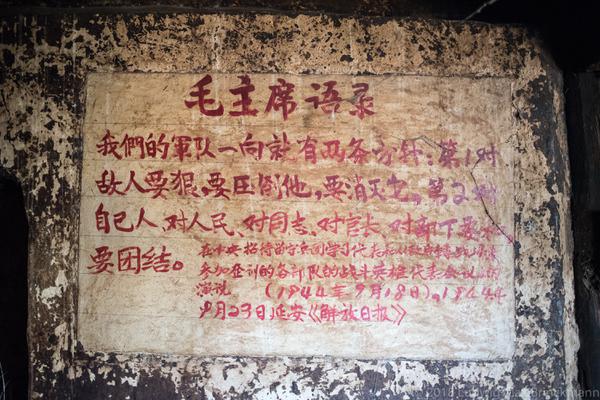 毛主席语录
我們的軍队一向就有两条方针:第1对
敌人要狠,要压倒他,要消灭它。第2对
自己人、对人民、对同志、对官长、对部下要
要团结。
在中央招待留守兵团学习代表
参加企训的各部队的战斗英雄代表会议上的
演说 (1944年9月18日)。1944年
9月23日延安《解放日报》